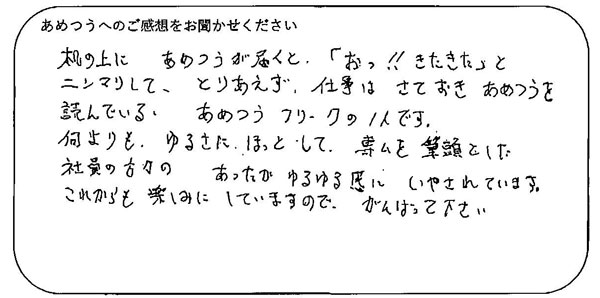 あめつうへのご感想をお聞かせください
机の上に あめつうが届くと、「おっ!!きたきた」と
ニンマリして、とりあえず、仕事は さておき あめつうを
読んでいる、 あめつう フリークの1人です。
何よりも、ゆるさに、ほっとして、専ムを筆頭とした
社員の方々の あったかゆるゆる感に いやされています。
これからも楽しみにしていますので、がんばって下さい